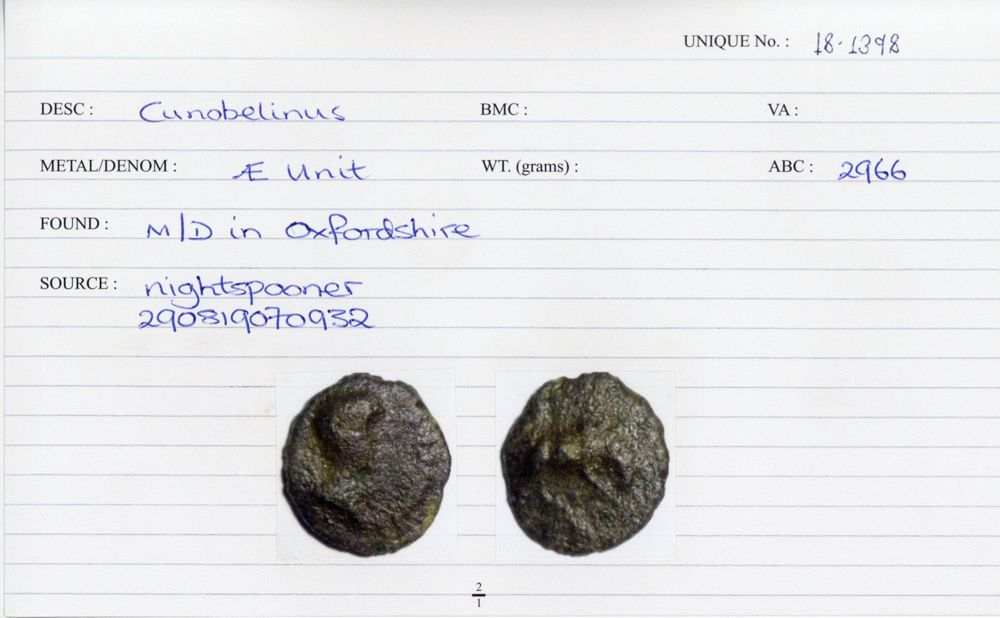 UNIQUE No. : 18.1398
DESC : Cunobelinus BMC : VA :
METAL/DENOM : Æ Unit WT. (grams) : ABC : 2966
FOUND : M/D in Oxfordshire
SOURCE : nightspooner
290819070932
2
1